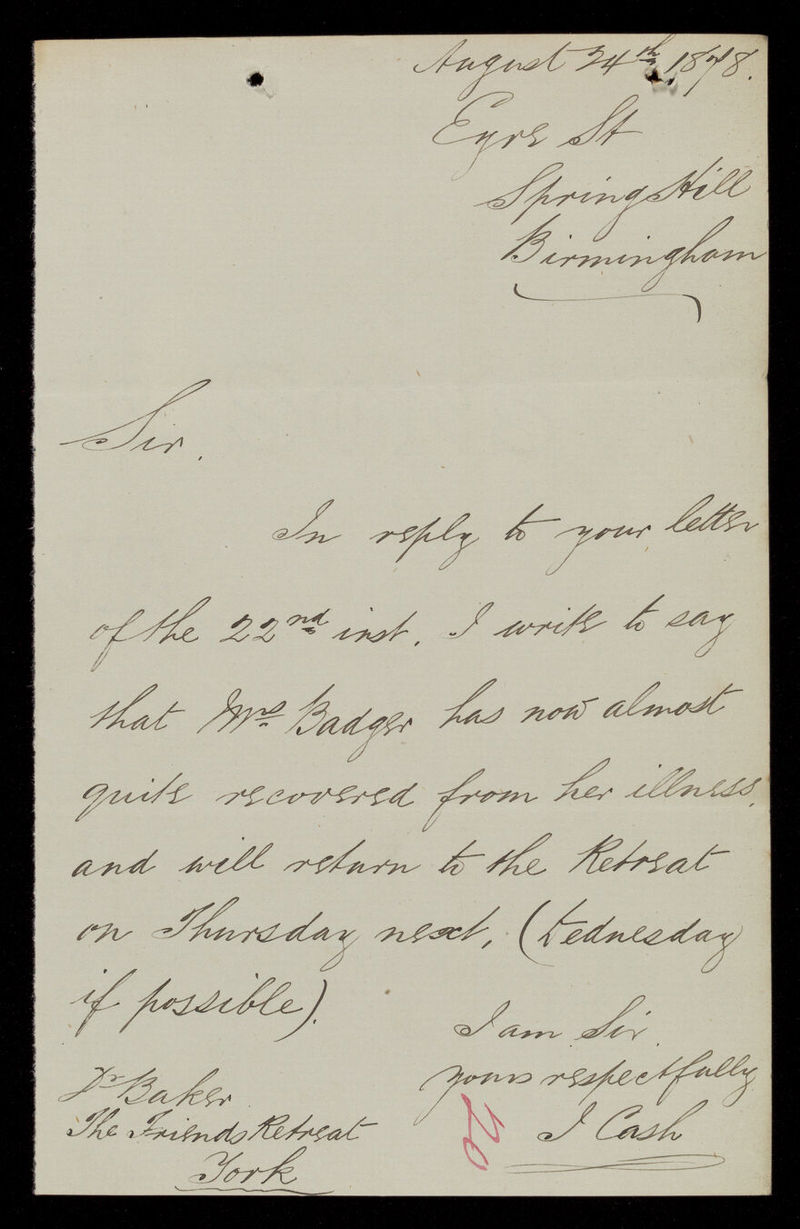 August 24th, 1878.
Eyre St
Spring Hill
Birmingham
Sir.
In reply to your letter
of the 22nd inst. I write to say
that Mrs Badger has now almost
quite recovered from her illness,
and will return to the Retreat
on Thursday next, (Wednesday
if possible).
I am Sir
yours respectfully
J Cash
Dr Baker
The Friends Retreat
York
20